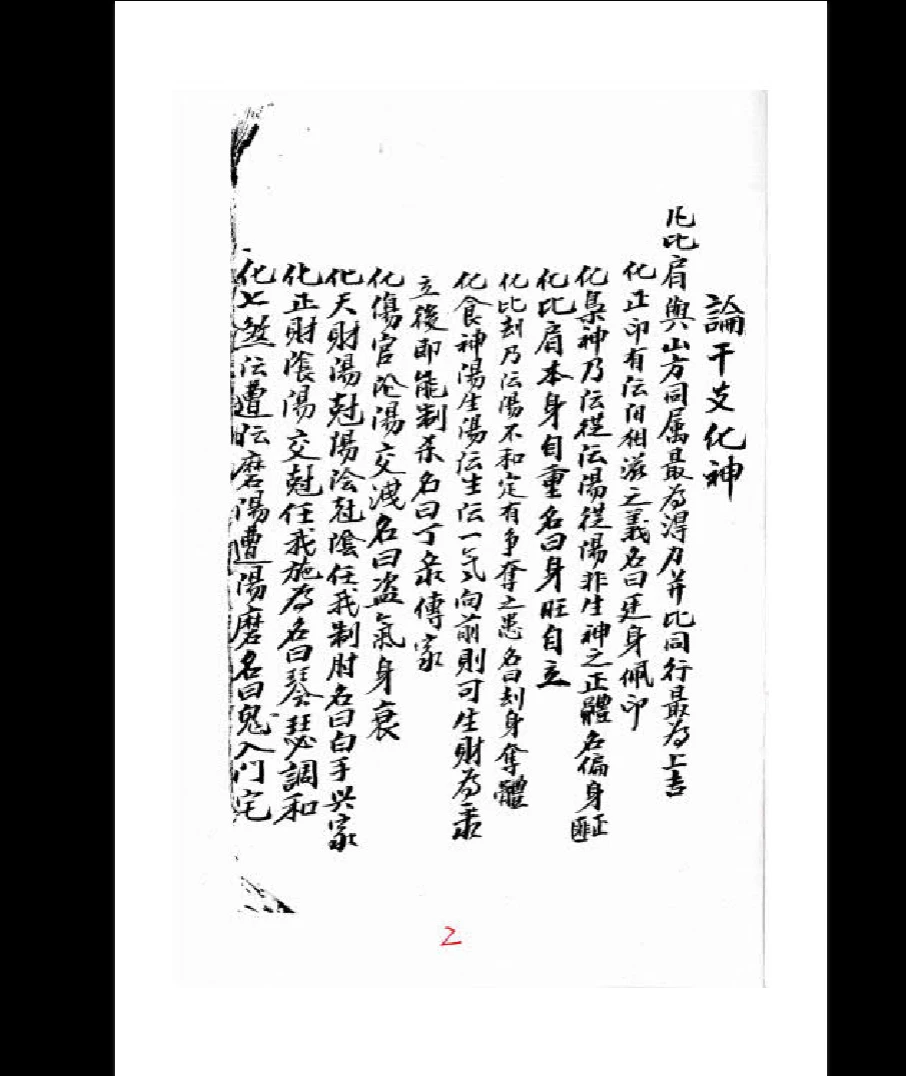 論干支化神
化比肩與山方同属最為淂力并比同行最為上吉
化正印有伝阳相滋之義名曰廷身佩印
化梟神乃伝從伝陽從陽非生神之正體名偏身匪正
化比肩本身自重名曰身旺自立
化比刦乃伝陽不和定有争奪之患名曰刦身奪體
化食神陽生陽伝生伝一气向前則可生財為禄
立後即能制杀名曰丁录傳家
化傷官陰陽交洩名曰盗氣身衰
化天財陽尅陽陰尅陰任我制肘名曰白手兴家
化正財陰陽交尅任我施為名曰琴瑟調和
化七煞伝遭伝磨陽遭陽磨名曰鬼入门宅
2